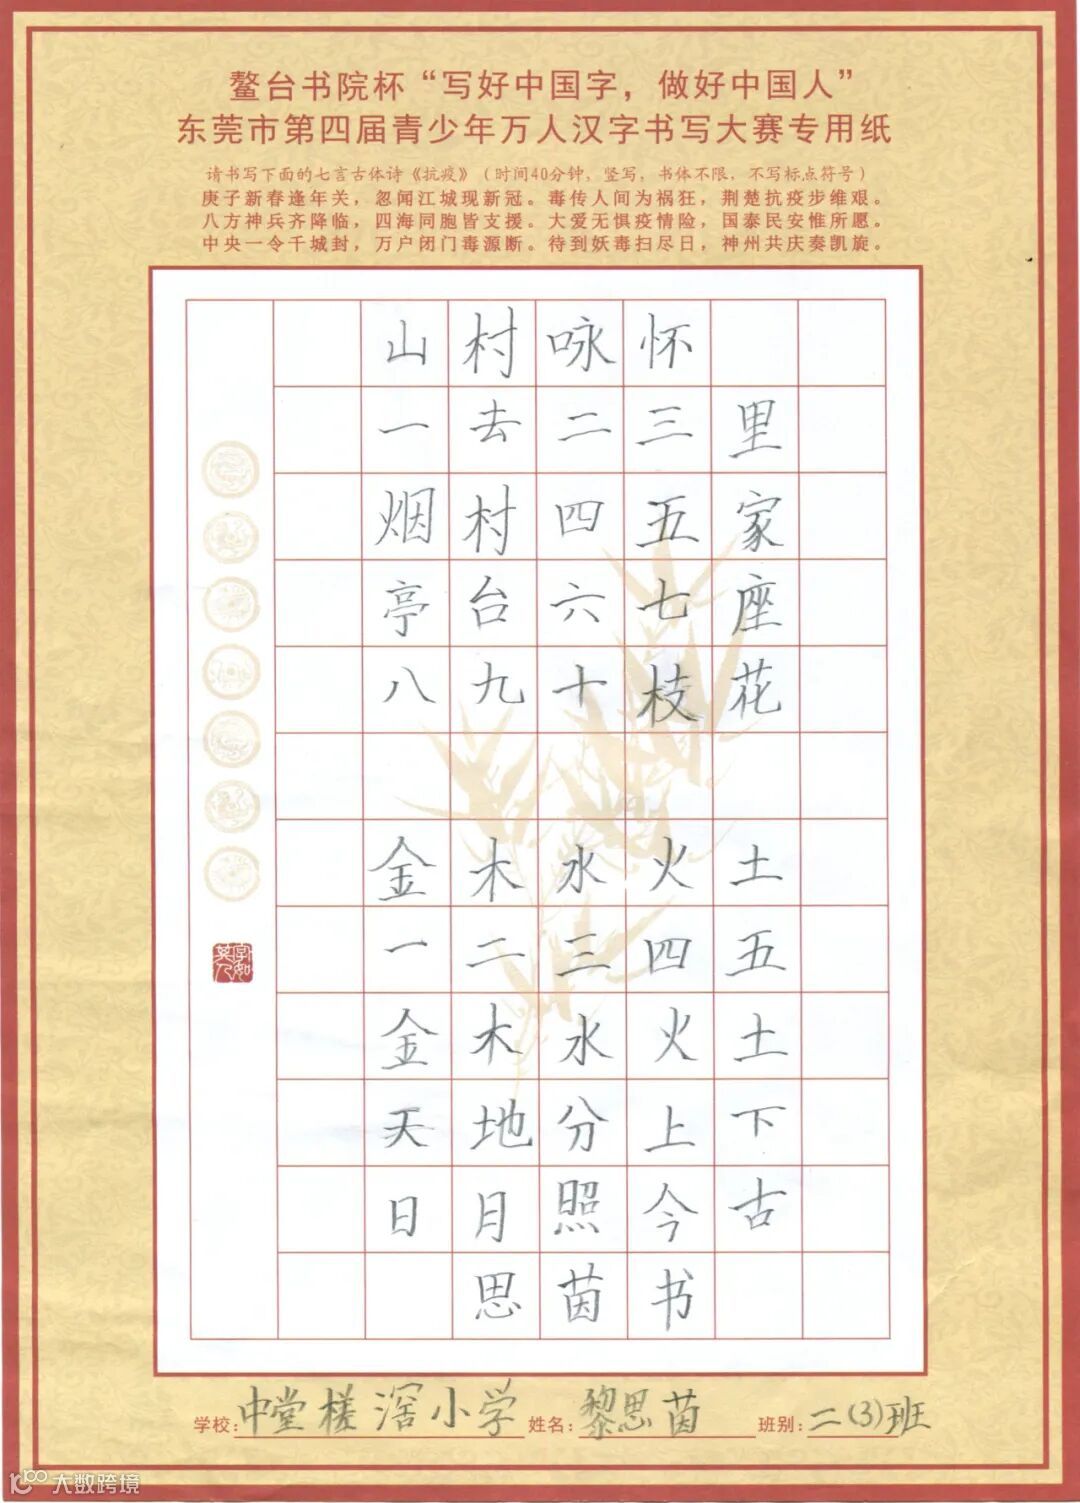 鳌台书院杯“写好中国字，做好中国人”
东莞市第四届青少年万人汉字书写大赛专用纸
请书写下面的七言古体诗《抗疫》（时间40分钟，竖写，书体不限，不写标点符号）
庚子新春逢年关，忽闻江城现新冠。毒传人间为祸狂，荆楚抗疫步维艰。
八方神兵齐降临，四海同胞皆支援。大爱无惧疫情险，国泰民安惟所愿。
中央一令千城封，万户闭门毒源断。待到妖毒扫尽日，神州共庆奏凯旋。
山村咏怀
一去二三里
烟村四五家
亭台六七座
八九十枝花
金木水火土
一二三四五
金木水火土
天地分上下
日月照今古
思茵书
学校：中堂槎滘小学 姓名：黎思茵 班别：二（3）班
大数跨境